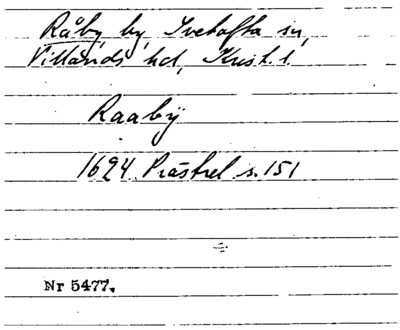 Råby, by, Ivetofta sn,
Villands hd, Krist. l.
Raabÿ
1624 Prästrel s. 151
Nr 5477.